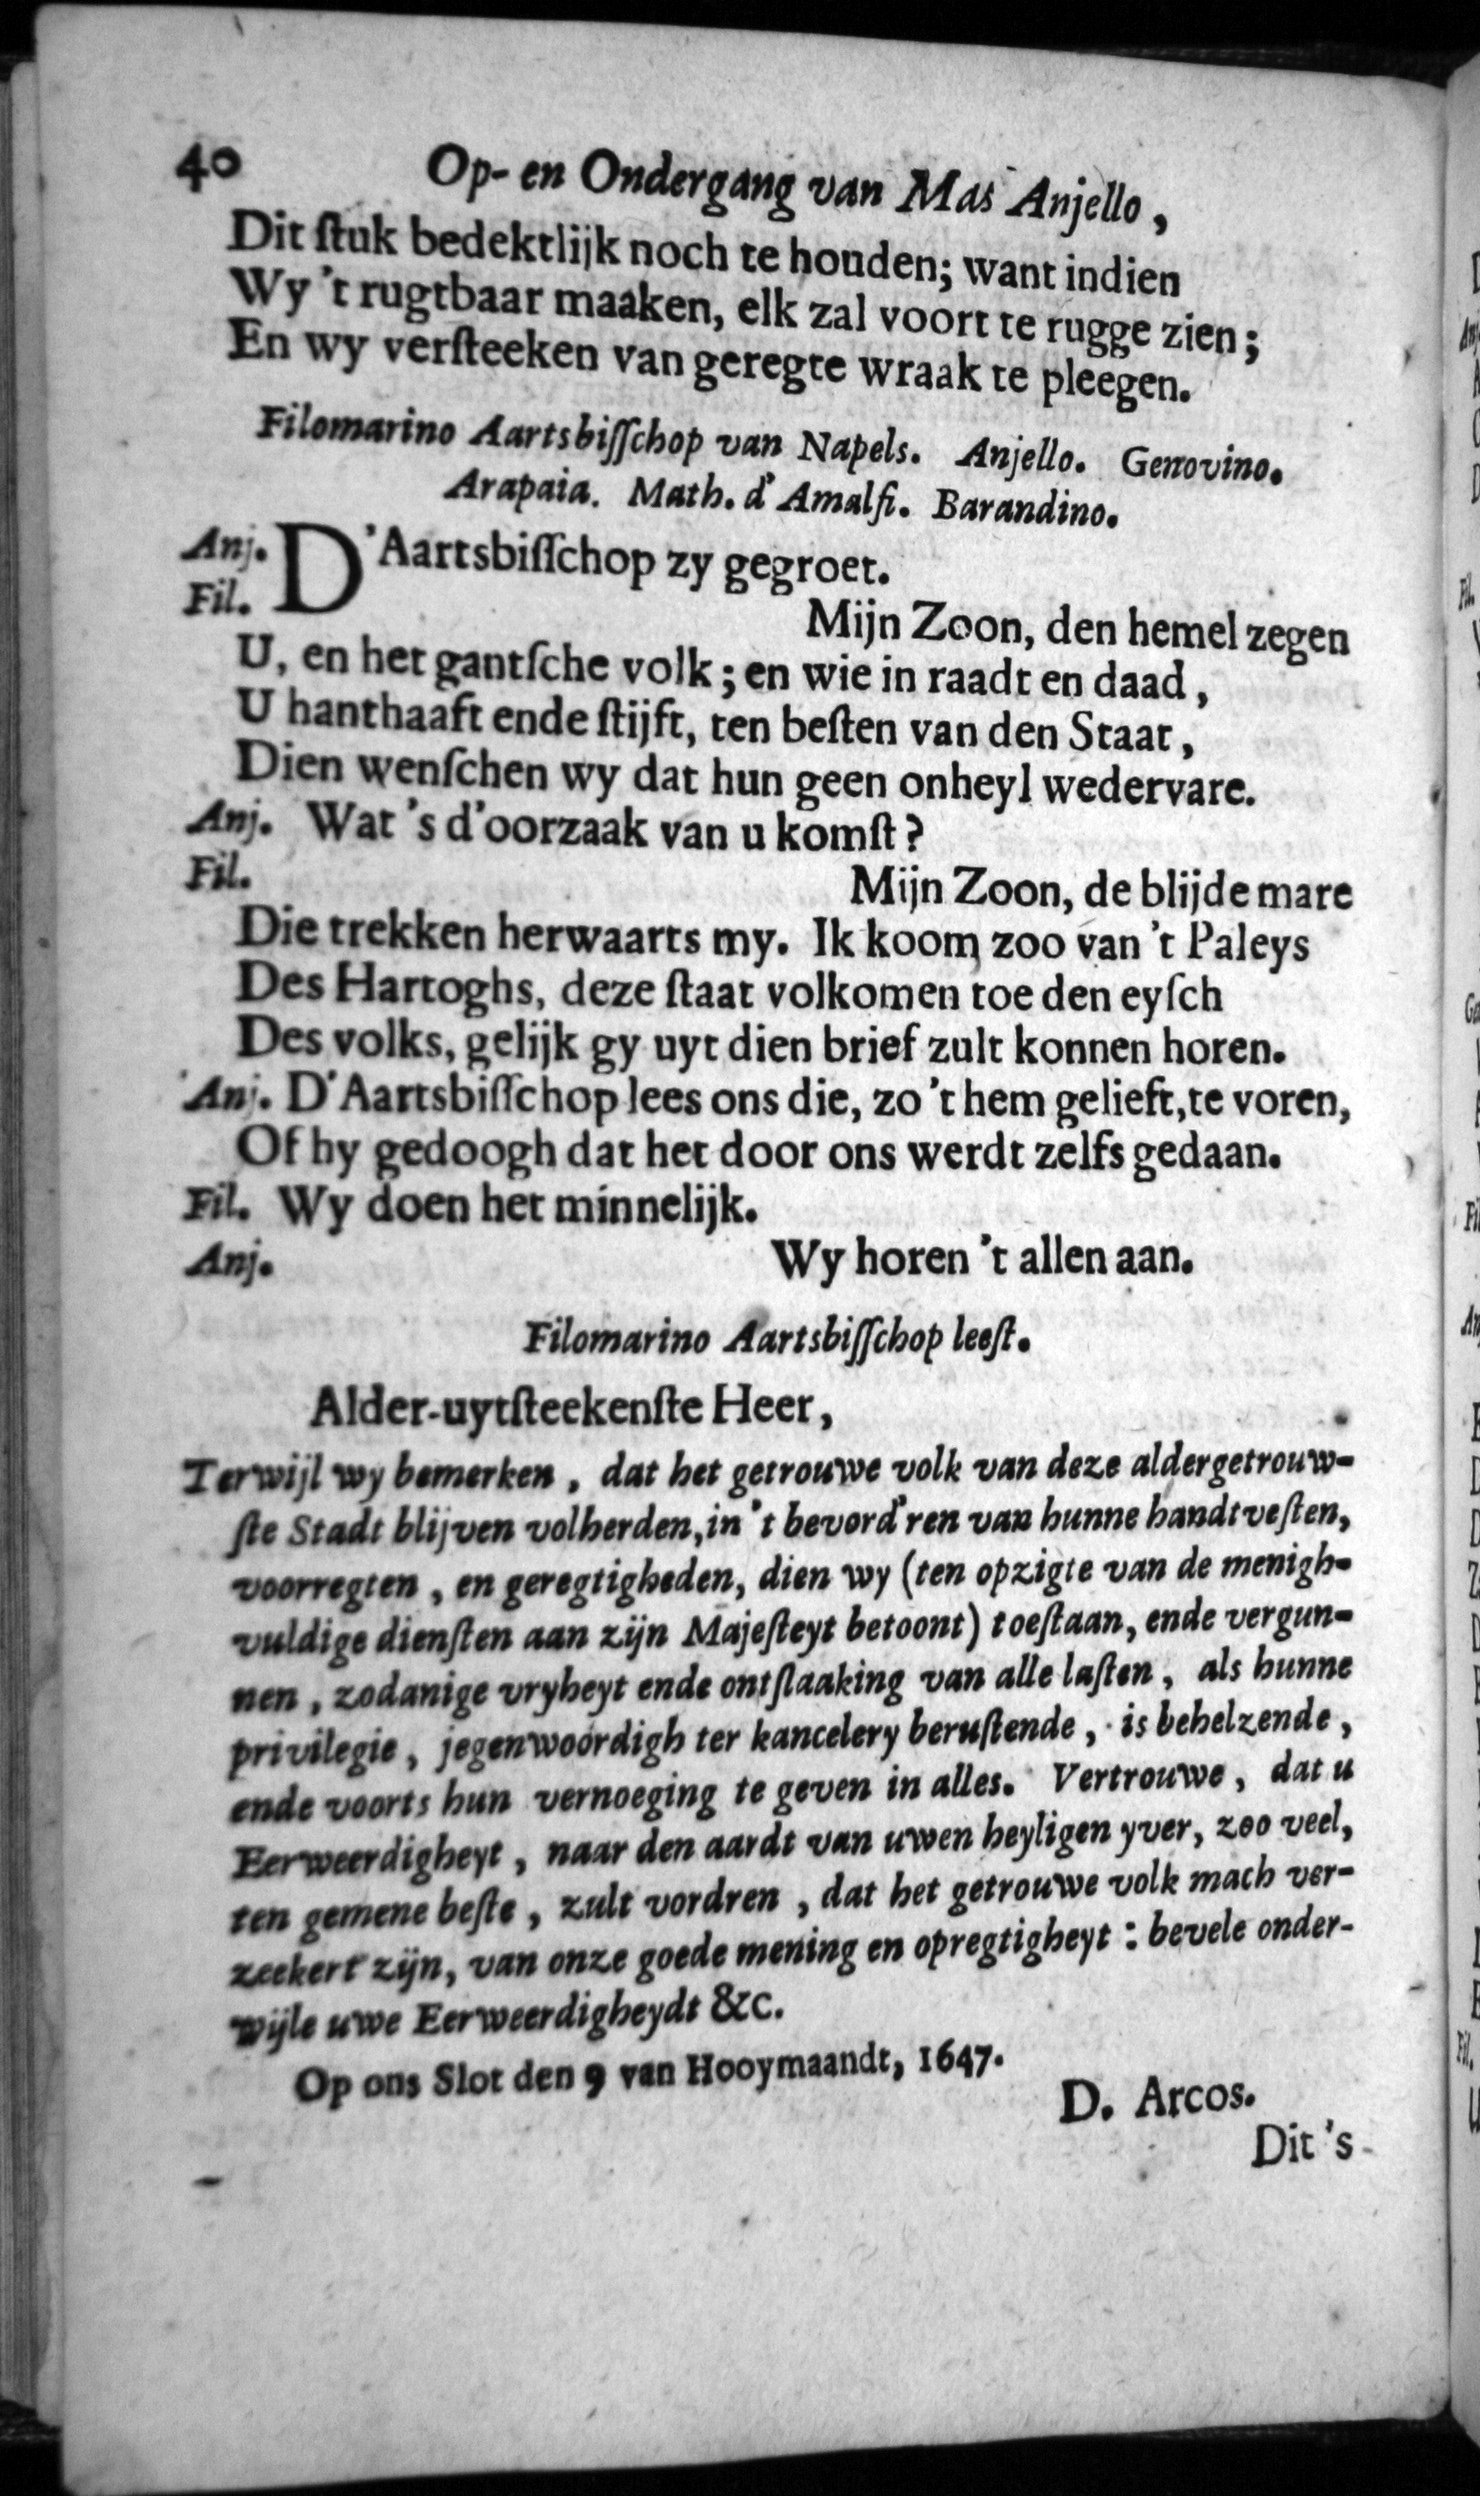 40 Op- en Ondergang van Mas Anjello,
Dit ſtuk bedektlijk noch te houden; want indien
Wy 't rugtbaar maaken, elk zal voort te rugge zien;
En wy verſteeken van geregte wraak te pleegen.
Filomarino Aartsbiſſchop van Napels. Anjello. Genovino.
Arapaia. Math. d'Amalfi. Barandino.
Anj. D'Aartsbiſſchop zy gegroet.
Fil. Mijn Zoon, den hemel zegen
U, en het gantſche volk; en wie in raadt en daad,
U hanthaaft ende ſtijft, ten beſten van den Staat,
Dien wenſchen wy dat hun geen onheyl wedervare.
Anj. Wat 's d'oorzaak van u komſt?
Fil. Mijn Zoon, de blijde mare
Die trekken herwaarts my. Ik koom zoo van 't Paleys
Des Hartoghs, deze ſtaat volkomen toe den eyſch
Des volks, gelijk gy uyt dien brief zult konnen horen.
Anj. D'Aartsbiſſchop lees ons die, zo 't hem gelieft, te voren,
Of hy gedoogh dat het door ons werdt zelfs gedaan.
Fil. Wy doen het minnelijk.
Anj. Wy horen 't allen aan.
Filomarino Aartsbiſſchop leeſt.
Alder-uytſteekenſte Heer,
Terwijl wy bemerken, dat het getrouwe volk van deze aldergetrouw-
ſte Stadt blijven volherden, in 't bevord'ren van hunne handtveſten,
voorregten, en geregtigheden, dien wy (ten opzigte van de menigh-
vuldige dienſten aan zijn Majeſteyt betoont) toeſtaan, ende vergun-
nen, zodanige vryheyt ende ontſlaaking van alle laſten, als hunne
privilegie, jegenwoordigh ter kancelery beruſtende, is behelzende,
ende voorts hun vernoeging te geven in alles. Vertrouwe, dat u
Eerweerdigheyt, naar den aardt van uwen heyligen yver, zoo veel,
ten gemene beſte, zult vordren, dat het getrouwe volk mach ver-
zeekert zijn, van onze goede mening en opregtigheyt: bevele onder-
wijle uwe Eerweerdigheydt &c.
Op ons Slot den 9 van Hooymaandt, 1647.
D. Arcos.
Dit 's